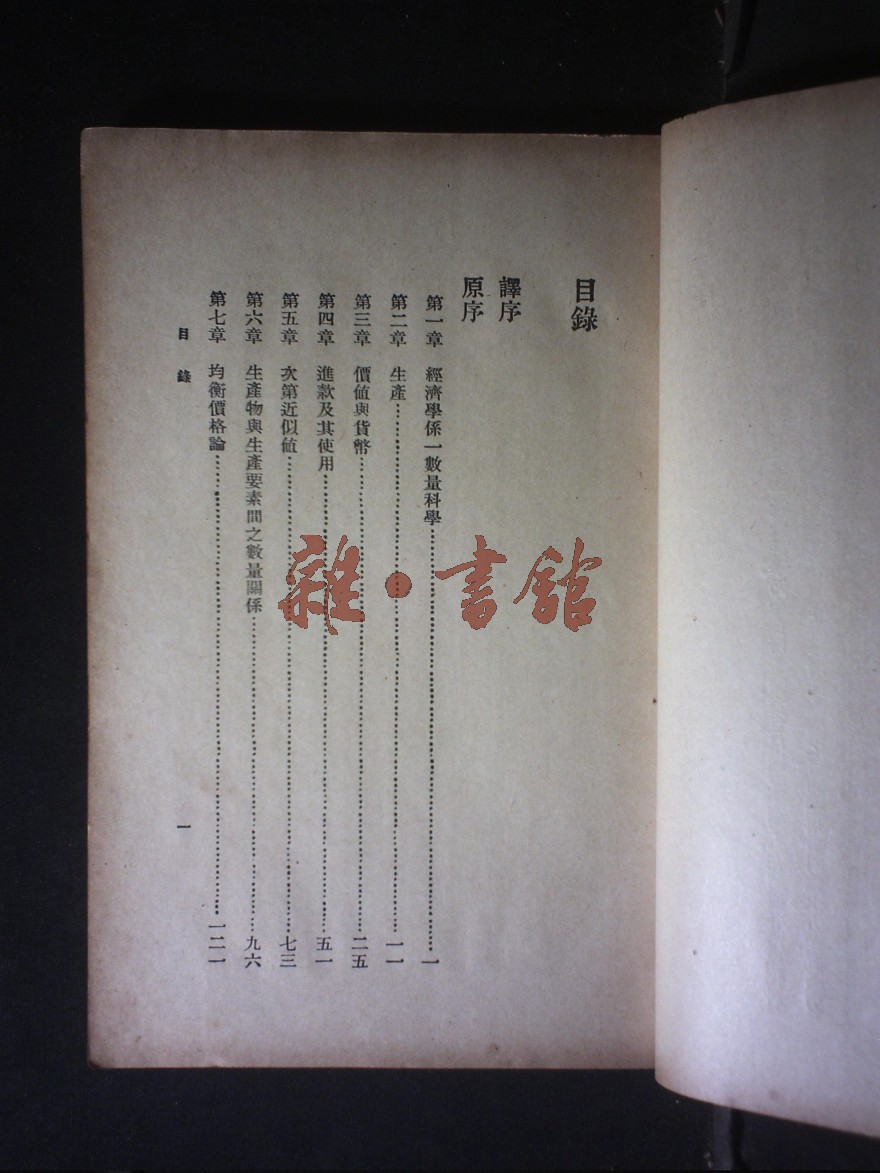 目錄
譯序
原序
第一章 經濟學係一數量科學……一
第二章 生產……一一
第三章 價值與貨幣……二五
第四章 進款及其使用……五一
第五章 次第近似值……七三
第六章 生產物與生產要素間之數量關係……九六
第七章 均衡價格論……一二一
目錄 一
雜·書館